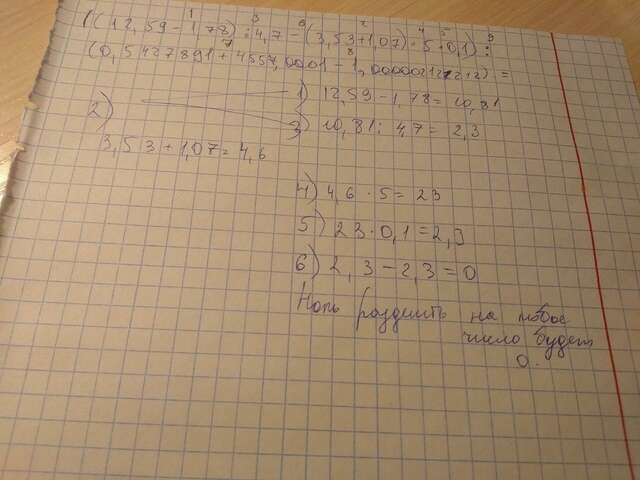 1 3 6 2 4 5 9
((12,59-1,78):4,7-(3,53+1,07)·5·0,1):
7 8
(0,5427891+4557,0001-1,000002122+2)=
1) 12,59-1,78=10,81
2) 3) 10,81:4,7=2,3
3,53+1,07=4,6
4) 4,6·5=23
5) 23·0,1=2,3
6) 2,3-2,3=0
Ноль разделить на любое
число будет
0.